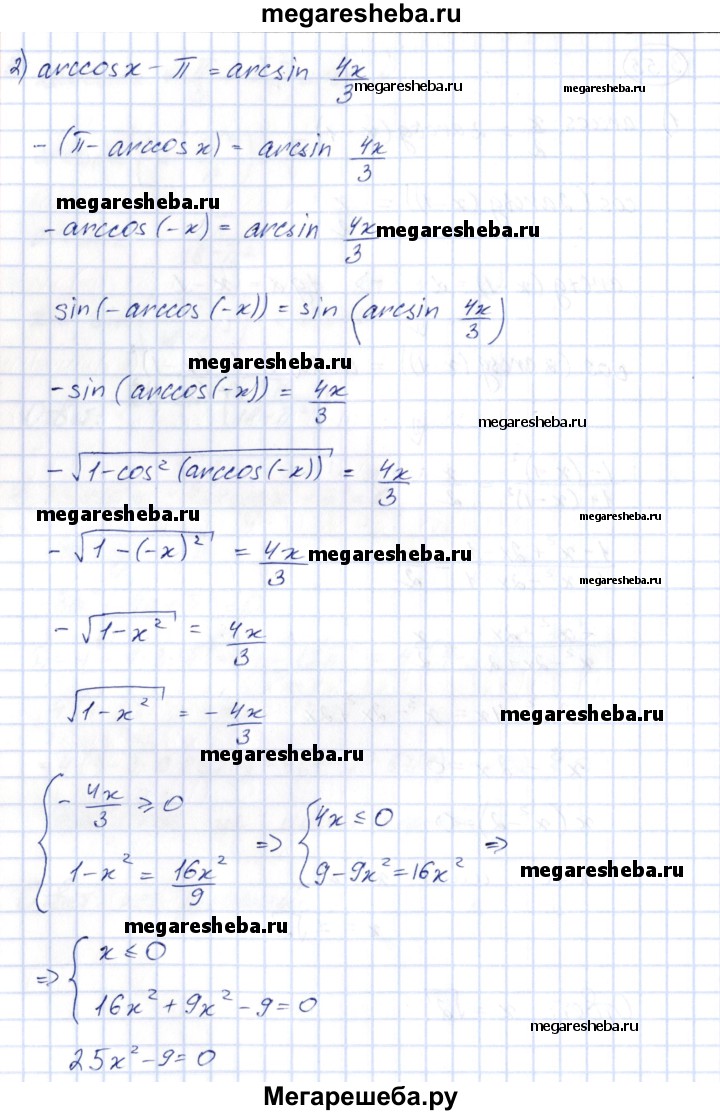 megaresheba.ru
2) arccosx - π = arcsin 4x/3
megaresheba.ru
megaresheba.ru
- (π - arccosx) = arcsin 4x/3
megaresheba.ru
- arccos(-x) = arcsin 4x/3
megaresheba.ru
sin(-arccos(-x)) = sin(arcsin 4x/3)
megaresheba.ru
-sin(arccos(-x)) = 4x/3
megaresheba.ru
-√(1-cos²(arccos(-x))) = 4x/3
megaresheba.ru
megaresheba.ru
-√(1-(-x)²) = 4x/3
megaresheba.ru
megaresheba.ru
-√(1-x²) = 4x/3
√(1-x²) = -4x/3
megaresheba.ru
megaresheba.ru
{ -4x/3 ≥ 0 => { 4x ≤ 0 =>
1-x² = 16x²/9 9-9x² = 16x²
megaresheba.ru
megaresheba.ru
=> { x ≤ 0
16x² + 9x² - 9 = 0
megaresheba.ru
25x² - 9 = 0
Мегарешеба.ру